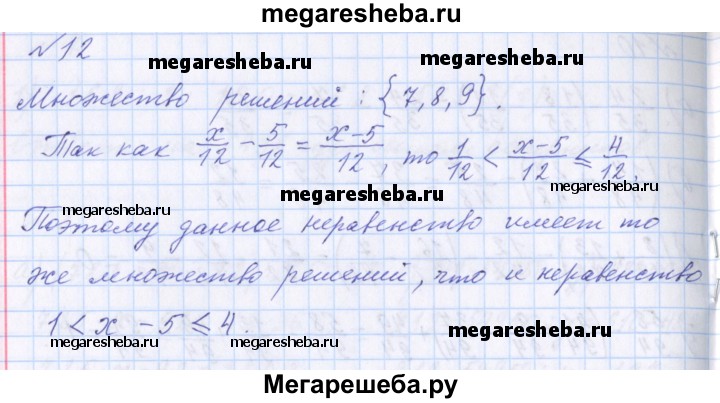 megaresheba.ru
№12
megaresheba.ru megaresheba.ru
Множество решений : {7, 8, 9}.
Так как x/12 - 5/12 = x-5/12, то 1/12 < x-5/12 ≤ 4/12.
megaresheba.ru
megaresheba.ru megaresheba.ru
Поэтому данное неравенство имеет то
же множество решений, что и неравенство
1 < x - 5 ≤ 4.
megaresheba.ru megaresheba.ru
megaresheba.ru
Мегарешеба.ру